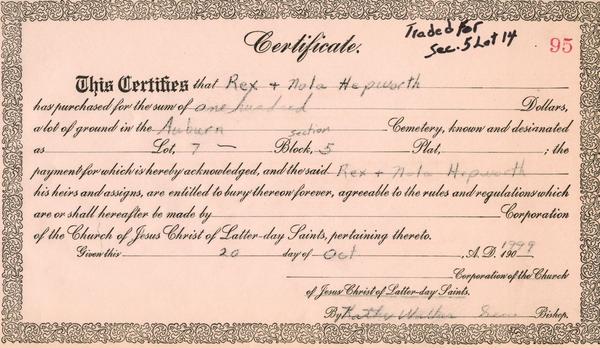 Traded For
Sec. 5 Lot 14
95
Certificate.
This Certifies that Rex + Nola Hepworth
has purchased for the sum of one hundred Dollars,
a lot of ground in the Auburn Cemetery, known and desianated
section
as Lot, 7 — Block, 5 Plat, ; the
payment for which is hereby acknowledged, and the said Rex + Nola Hepworth
his heirs and assigns, are entitled to bury thereon forever, agreeable to the rules and regulations which
are or shall hereafter be made by Corporation
of the Church of Jesus Christ of Latter-day Saints, pertaining thereto.
Given this 20 day of Oct , A.D. 190 1999
Corporation of the Church
of Jesus Christ of Latter-day Saints.
By Kathy Bishop.